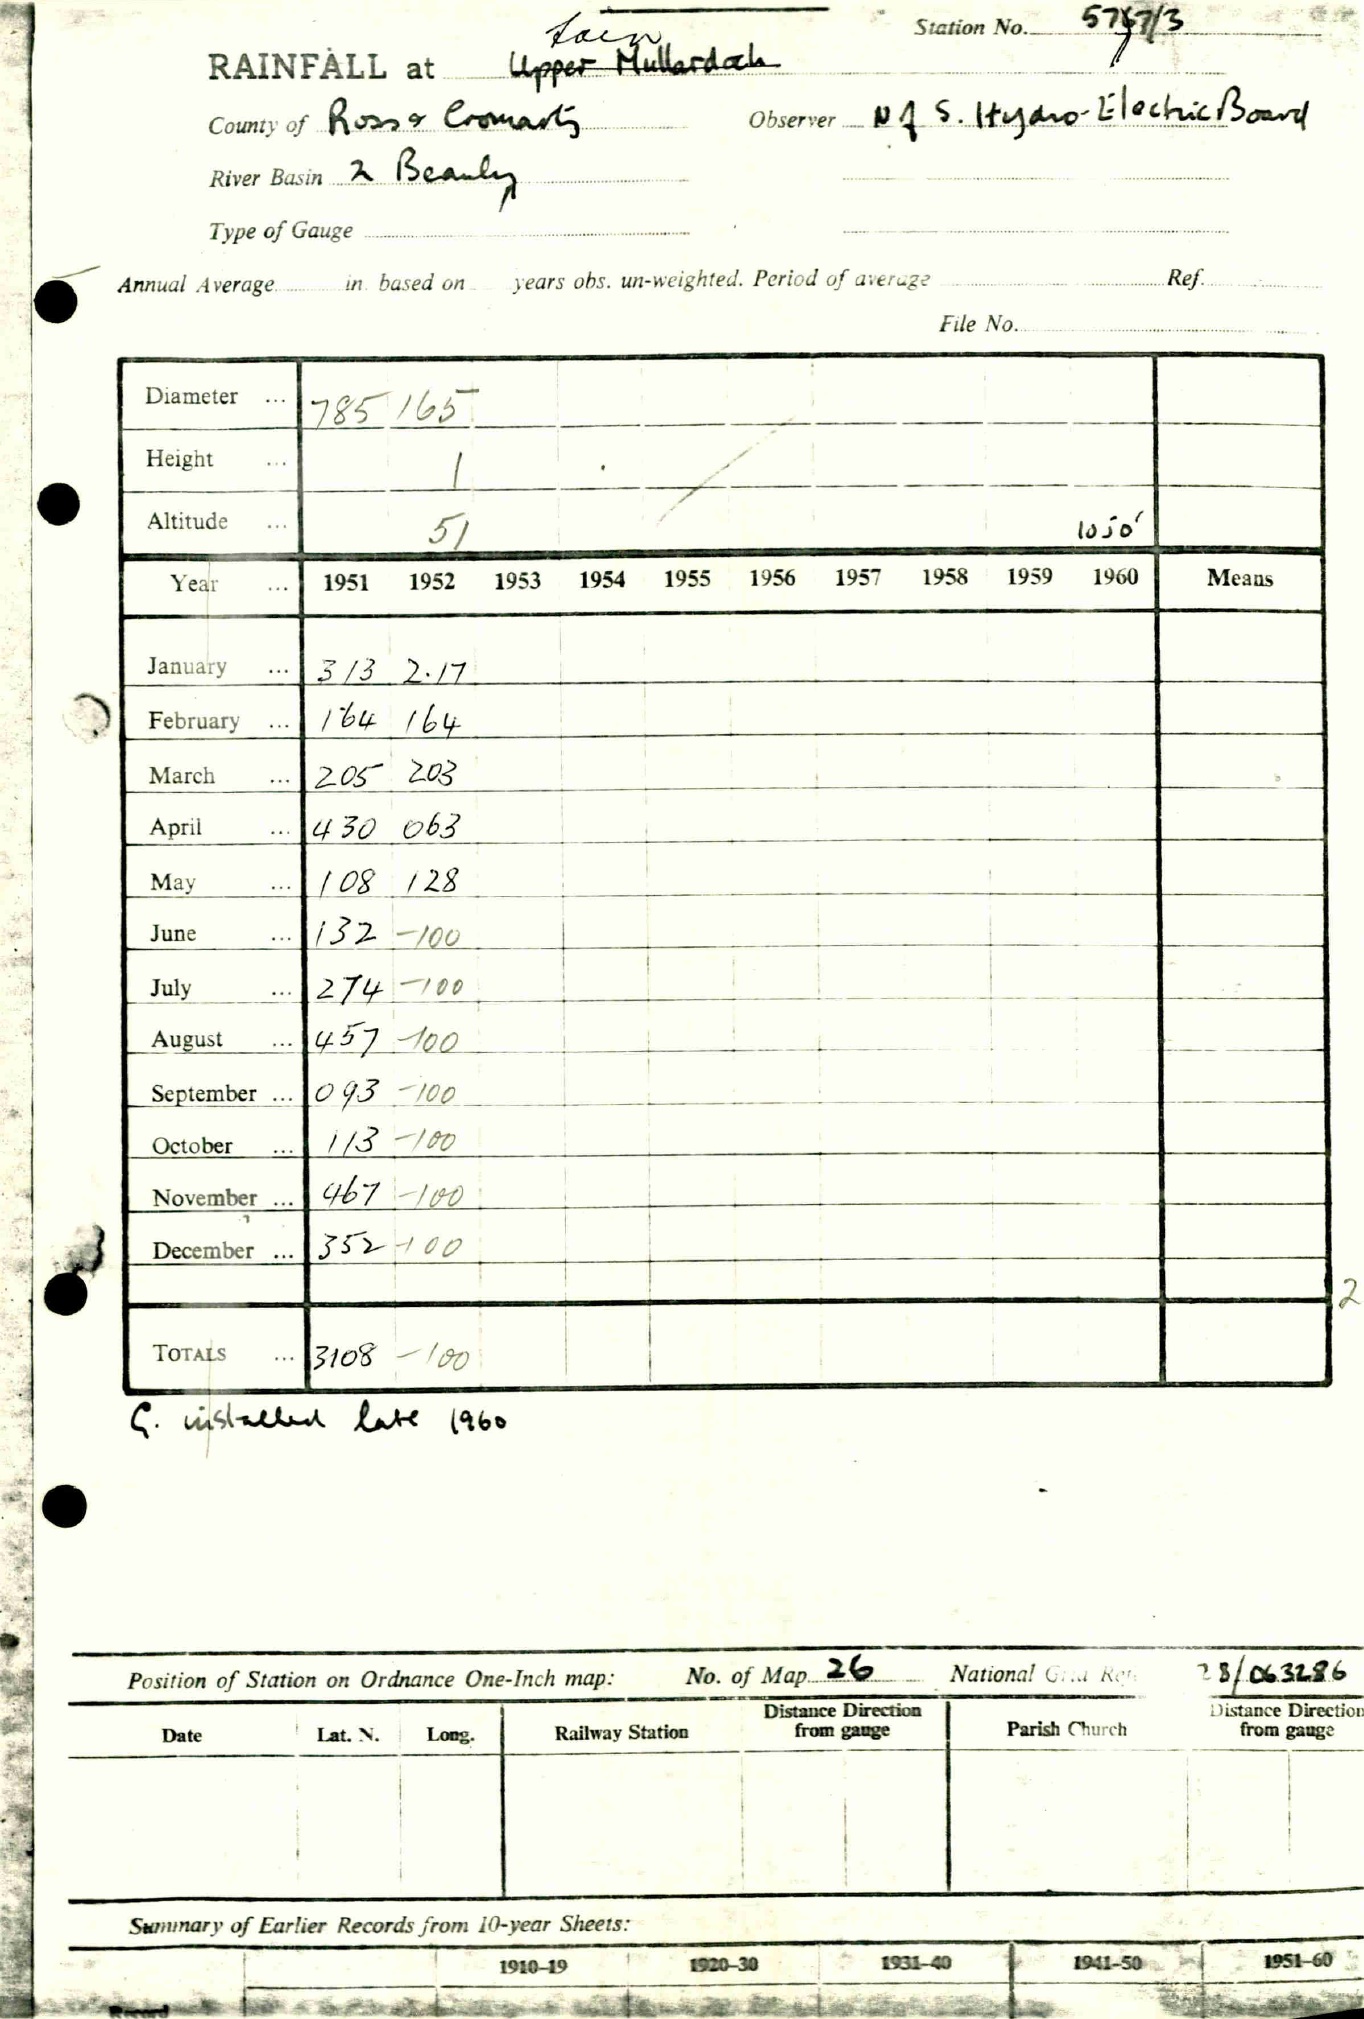 Station No. 5767/3
Tain
RAINFALL at Upper Mullardoch
County of Ross & Cromarty Observer N of S. Hydro-Electric Board
River Basin 2 Beauly
Type of Gauge
Annual Average in. based on years obs. un-weighted. Period of average Ref.
File No.
Diameter ... 785 165
Height ... 1
Altitude ... 51 1050'
Year ... 1951 1952 1953 1954 1955 1956 1957 1958 1959 1960 Means
January ... 313 2.17
February ... 164 164
March ... 205 203
April ... 430 063
May ... 108 128
June ... 132 -100
July ... 274 -100
August ... 457 -100
September ... 093 -100
October ... 113 -100
November ... 467 -100
December ... 352 -100
2
TOTALS ... 3108 -100
G. installed late 1960
Position of Station on Ordnance One-Inch map: No. of Map 26 National Grid Ref. 28/063286
Date Lat. N. Long. Railway Station Distance Direction from gauge Parish Church Distance Direction from gauge
Summary of Earlier Records from 10-year Sheets:
1910-19 1920-30 1931-40 1941-50 1951-60
Record